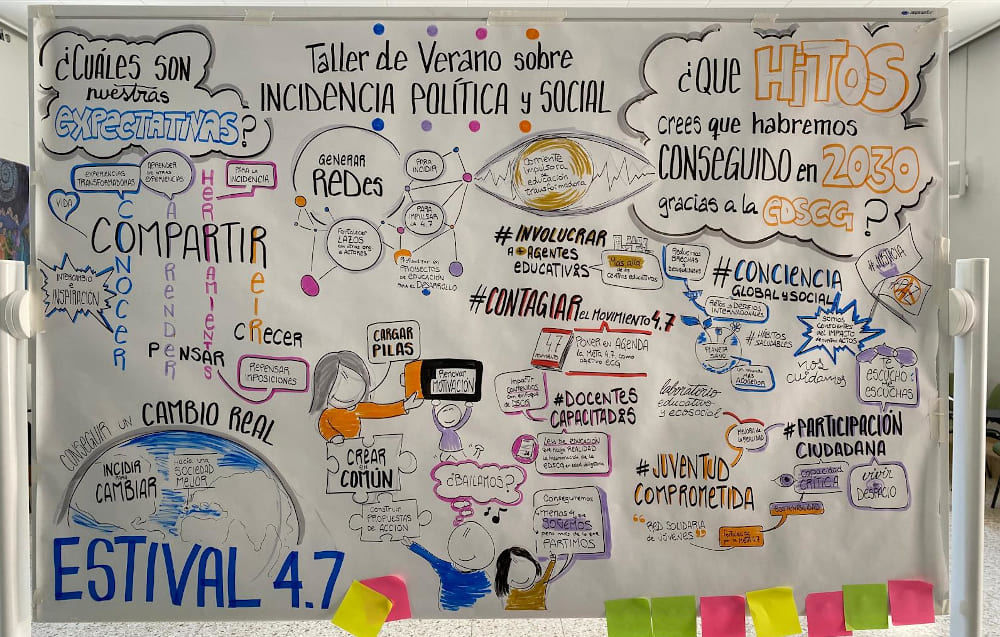 ¿CUÁLES SON
nuestras
EXPECTATIVAS?
Taller de Verano sobre
INCIDENCIA POLÍTICA y SOCIAL
¿QUE HITOS
crees que habremos
CONSEGUIDO en 2030
gracias a la EDSCG?
EXPERIENCIAS
TRANSFORMADORAS
APRENDER
DE OTRAS
EXPERIENCIAS
PARA LA
INCIDENCIA
VIDA
COMPARTIR
CONOCER
APRENDER
HERRAMIENTAS
REIR
INTERCAMBIO e
INSPIRACIÓN
CRECER
PENSAR
REPENSAR
IMPOSICIONES
GENERAR
REDes
PARA
INCIDIR
PARA
IMPULSAR
LA 4.7
Fortalecer
LAZOS
con otras org
o ACTORES
PROYECTOS DE
EDUCACIÓN
PARA EL DESARROLLO
Gomente
impulsora
educación
transformadora
#INVOLUCRAR
A + AGENTES
EDUCATIV@S
Mas alla
de los
centros educativos
Reducimos
BRECHAS
DESIGUALDADES
#CONCIENCIA
GLOBAL y SOCIAL
#JUSTICIA
RETOS y DESAFIOS
INTERNACIONALES
PLANETA
SANO
#HÁBITOS
SALUDABLES
Un mundo más
ACOGEDOR
SOMOS
CONSCIENTES
DEL IMPACTO
de nuestros ACTOS
nos
cuidamos
TE
ESCUCHO y
ESCUCHAS
#CONTAGIAR el MOVIMIENTO 4.7
4.7
PONER EN AGENDA
LA META 4.7 COMO
OBJETIVO ECG
CARGAR
PILAS
Renovar
MOTIVACIÓN
Impartir
CONTENIDOS
con enfoque
de EDSCG
#DOCENTES
CAPACITAD@S
LEY DE EDUCACIÓN
que haga REALIDAD
la incorporación de la
EDSCG
laboratorio
educativo
y ecosocial
MEJORA DE
la REALIDAD
#PARTICIPACIÓN
CIUDADANA
CAPACIDAD
CRÍTICA
vivir
DESPACIO
#JUVENTUD
COMPROMETIDA
SOSTENIBILIDAD
"RED SOLIDARIA
DE JÓVENES"
por la META 4.7
CONSEGUIR UN CAMBIO REAL
INCIDIR
PARA
CAMBIAR
Hacia una
SOCIEDAD
MEJOR
CREAR
en
COMÚN
Construir
PROPUESTAS
DE ACCIÓN
¿BAILAMOS?
Conseguiremos
menos q
SOÑEMOS
pero más de lo que
PARTIMOS
ESTIVAL 4.7